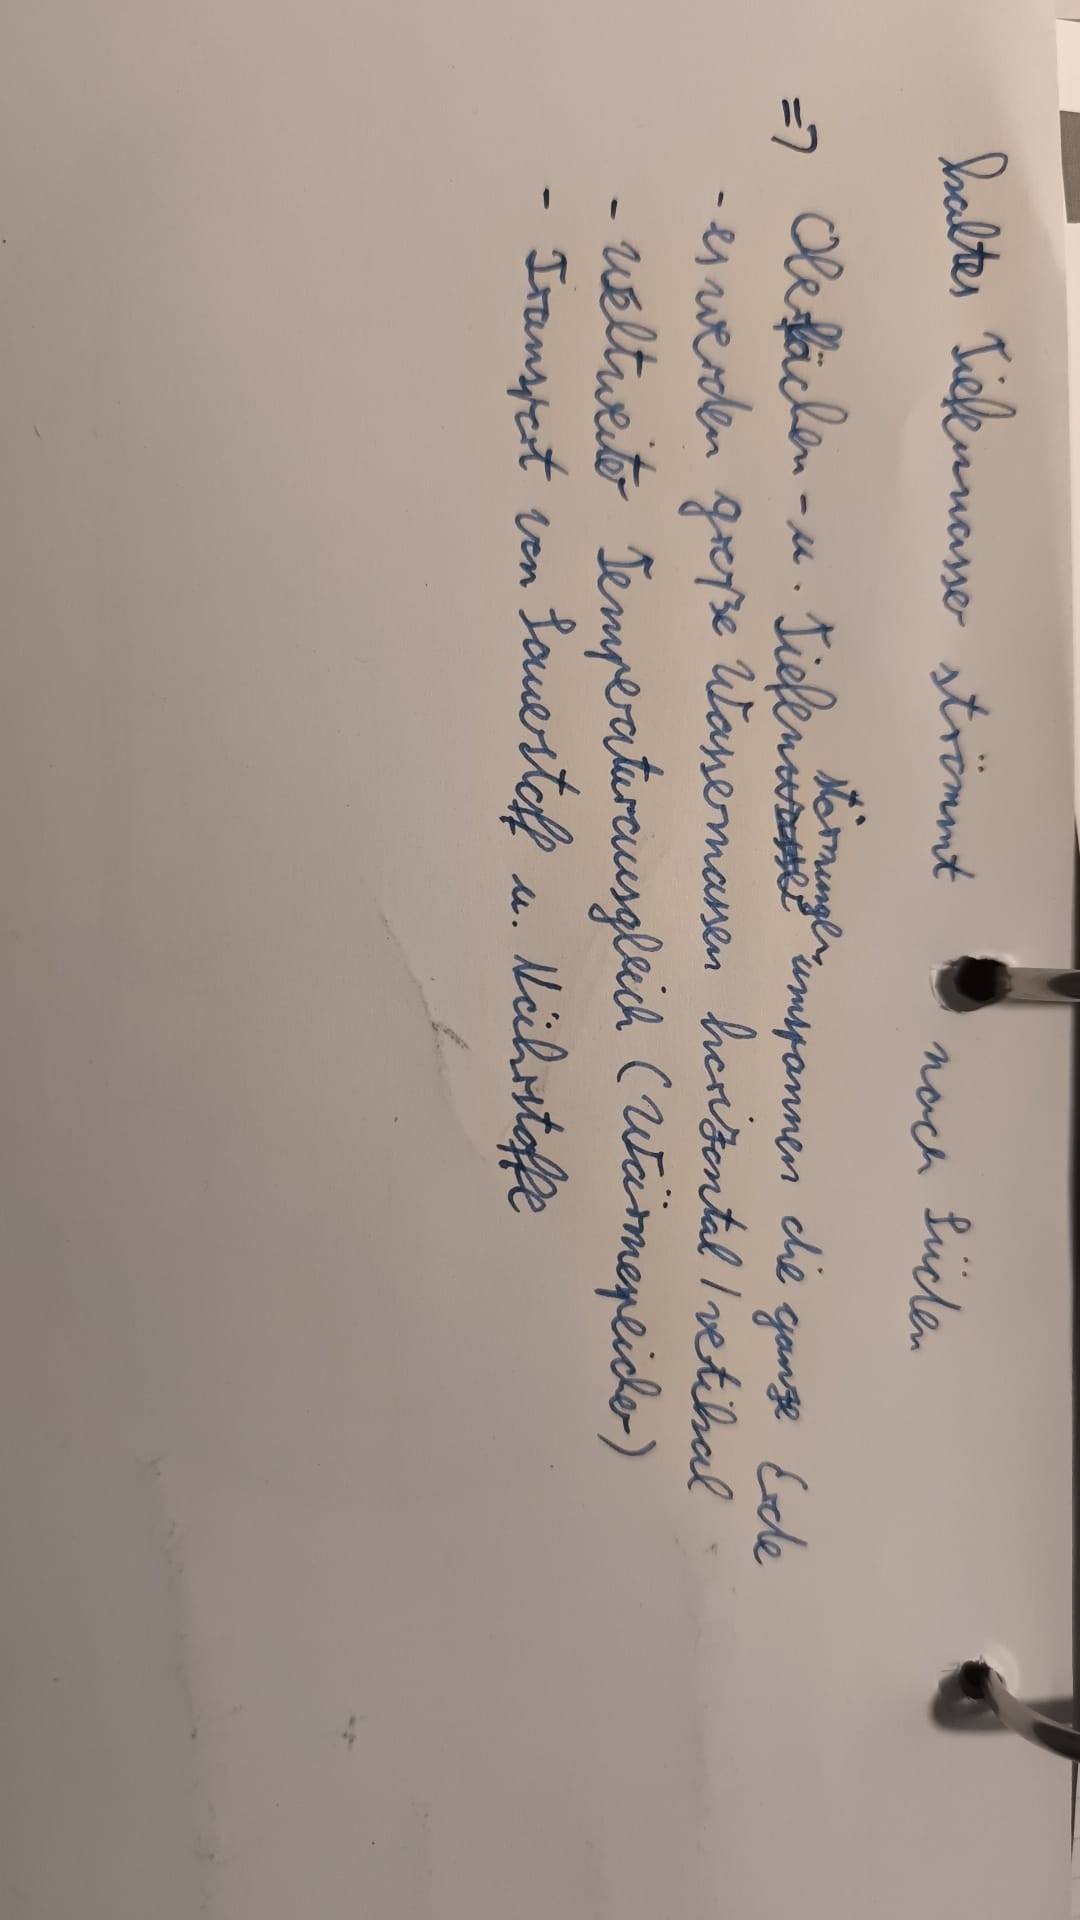 kaltes Tiefenwasser strömmt nach Süden
=> Oberflächen- u. Tiefen störmungen umspannen die ganze Erde
- es werden große Wassermassen horizontal / vertikal
- weltweiter Temperaturausgleich (Wärmespeicher)
- Transport von Sauerstoff u. Nährstoffe